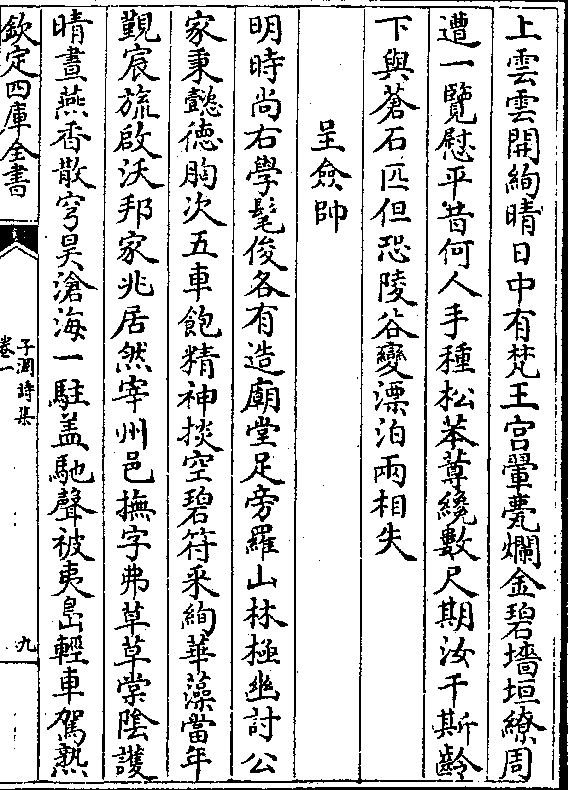 上雲雲開絢晴日中有梵王宮翬甍爛金碧墻垣繚周
遭一覽慰平昔何人手種松苯䔿纔數尺期汝千斯齡
下與蒼石匹但恐陵谷變漂泊兩相失
呈僉帥
明時尚右學髦俊各有造廟堂足旁羅山林極幽討公
家秉懿德胸次五車飽精神掞空碧符采絢華藻當年
覲宸旒啟沃邦家兆居然宰州邑撫字弗草草棠陰護
晴晝燕香散穹昊滄海一駐盖馳聲被夷島輕車駕熟
欽定四庫全書
子淵詩集
卷一
九